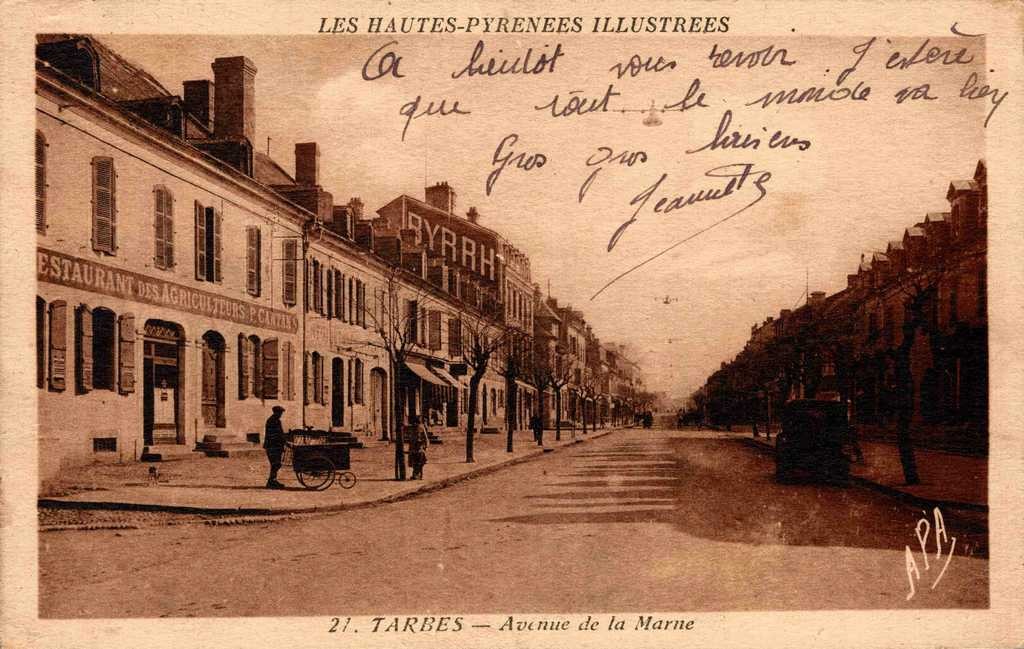 LES HAUTES-PYRENEES ILLUSTREES
A bientôt vous revoir J'espère
que tout le monde va bien
Gros gros baisers
Jeannette
BYRRH
ESTAURANT DES AGRICULTEURS P.
APA
21. TARBES — Avenue de la Marne